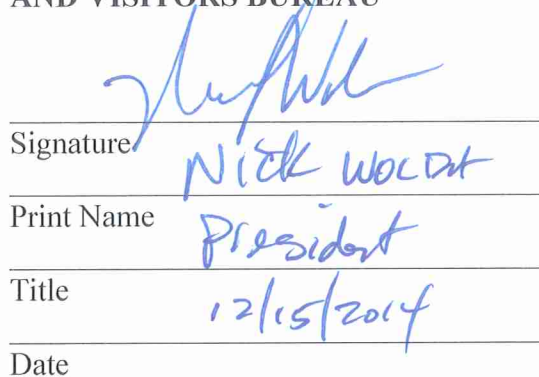 AND VISITORS BUREAU
Signature
NICK WOLDT
Print Name
President
Title
12/15/2014
Date